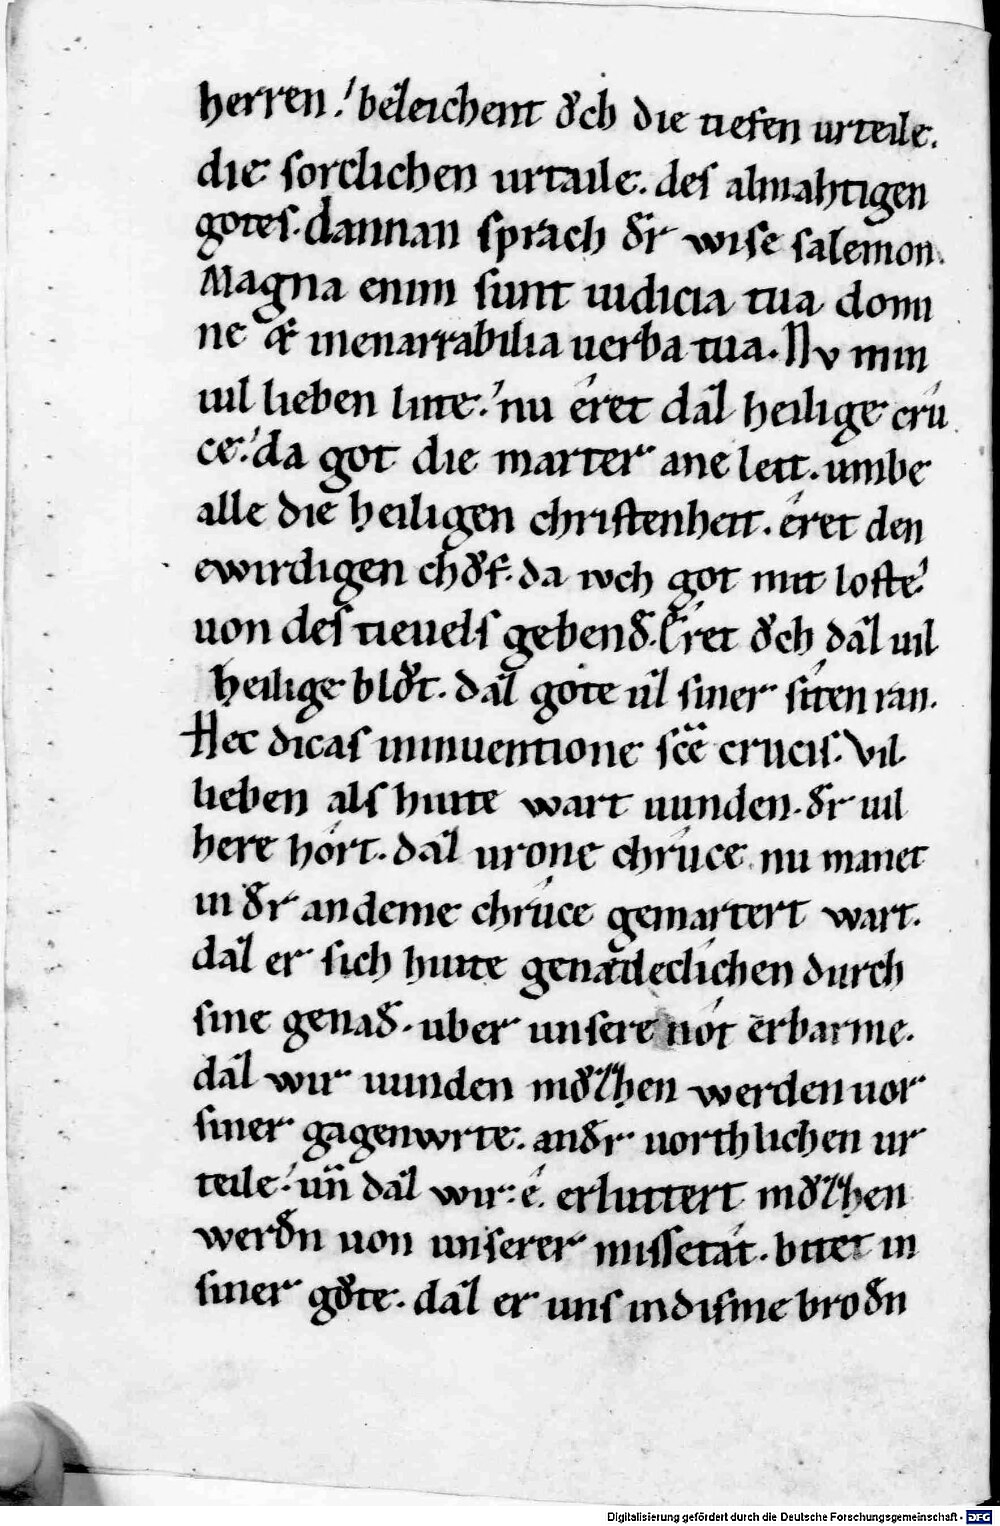 herren. beꝛeichent oͮch die tiefen urteile.
die sorclichen urtaile. des almahtigen
gotes. dannan sprach dr̄ wise salemon.
Magna enim sunt iudicia tua domi
ne & inenarrabilia uerba tua. Nv min
uil lieben lute. nu éret daꝛ heilige crú
ce. da got die marter ane leit. umbe
alle die heiligen christenheit. éret den
ewirdigen choͮf. da iwch got mit loste
uon des tieuels gebend̄. Éret oͮch daꝛ uil
heilige bloͮt. daꝛ gote úꝛ siner siten ran.
Hec dicas in inuentione sc̄e crucis. Vil
lieben als hiute wart uunden. dr̄ uil
here hórt. daꝛ urone chrúce. nu manet
in dr̄ an deme chrúce gemartert wart.
daꝛ er sich hiute genædeclichen durch
sine genad̄. uber unsere nót erbarme.
daꝛ wir uunden moͮꝛhen werden uor
siner gagenwrte. an dr̄ uorthlichen ur
teile. un̄ daꝛ wir é. erluttert moͮꝛhen
werdn̄ uon unserer missetát. bitet in
siner goͮte. daꝛ er uns in disme brodn̄
Digitalisierung gefördert durch die Deutsche Forschungsgemeinschaft - DFG